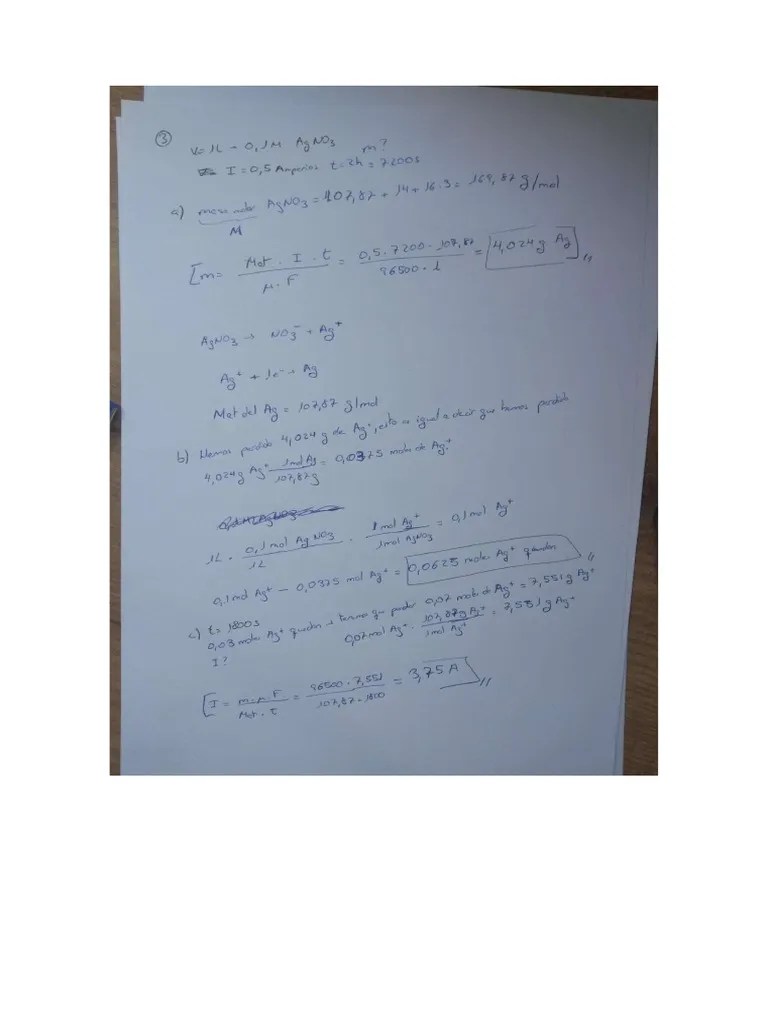 ③
V= 1L → 0,1M AgNO3 m?
I = 0,5 Amperios t = 2h = 7200s
a) masa molar AgNO3 = 107,87 + 14 + 16·3 = 169,87 g/mol
M
[m = Mat · I · t / n · F = 0,5 · 7200 · 107,87 / 96500 · 1 = 4,024 g Ag]
AgNO3 → NO3⁻ + Ag⁺
Ag⁺ + 1e⁻ → Ag
Mat del Ag = 107,87 g/mol
b) Hemos perdido 4,024 g de Ag⁺, esto es igual a decir que hemos perdido
4,024 g Ag⁺ 1 mol Ag / 107,87 g = 0,0375 moles de Ag⁺
1L · 0,1 mol AgNO3 / 1L · 1 mol Ag⁺ / 1 mol AgNO3 = 0,1 mol Ag⁺
0,1 mol Ag⁺ − 0,0375 mol Ag⁺ = 0,0625 moles Ag⁺ quedan
c) t = 1800s
0,03 moles Ag⁺ quedan → tenemos que perder 0,07 moles de Ag⁺ = 7,551 g Ag⁺
I? 0,07 mol Ag⁺ · 107,87 g Ag⁺ / 1 mol Ag⁺ = 7,551 g Ag⁺
[I = m·n·F / Mat · t = 96500 · 7,551 / 107,87 · 1800 = 3,75 A]